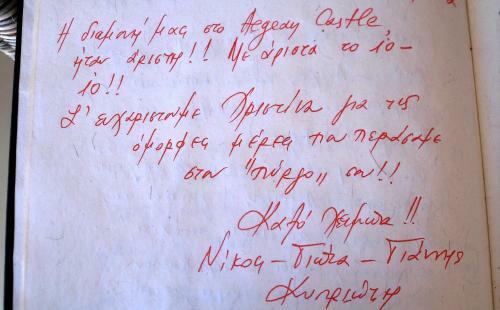 Η διαμονή μας στο Aegean Castle
ήταν άριστη!! Με άριστα το 10-
10!!
Σ' ευχαριστούμε Χριστίνα για τις
όμορφες μέρες που περάσαμε
στον "πύργο" σου!!
Καλό χειμώνα!!
Νίκος - Γιώτα - Γιάννης